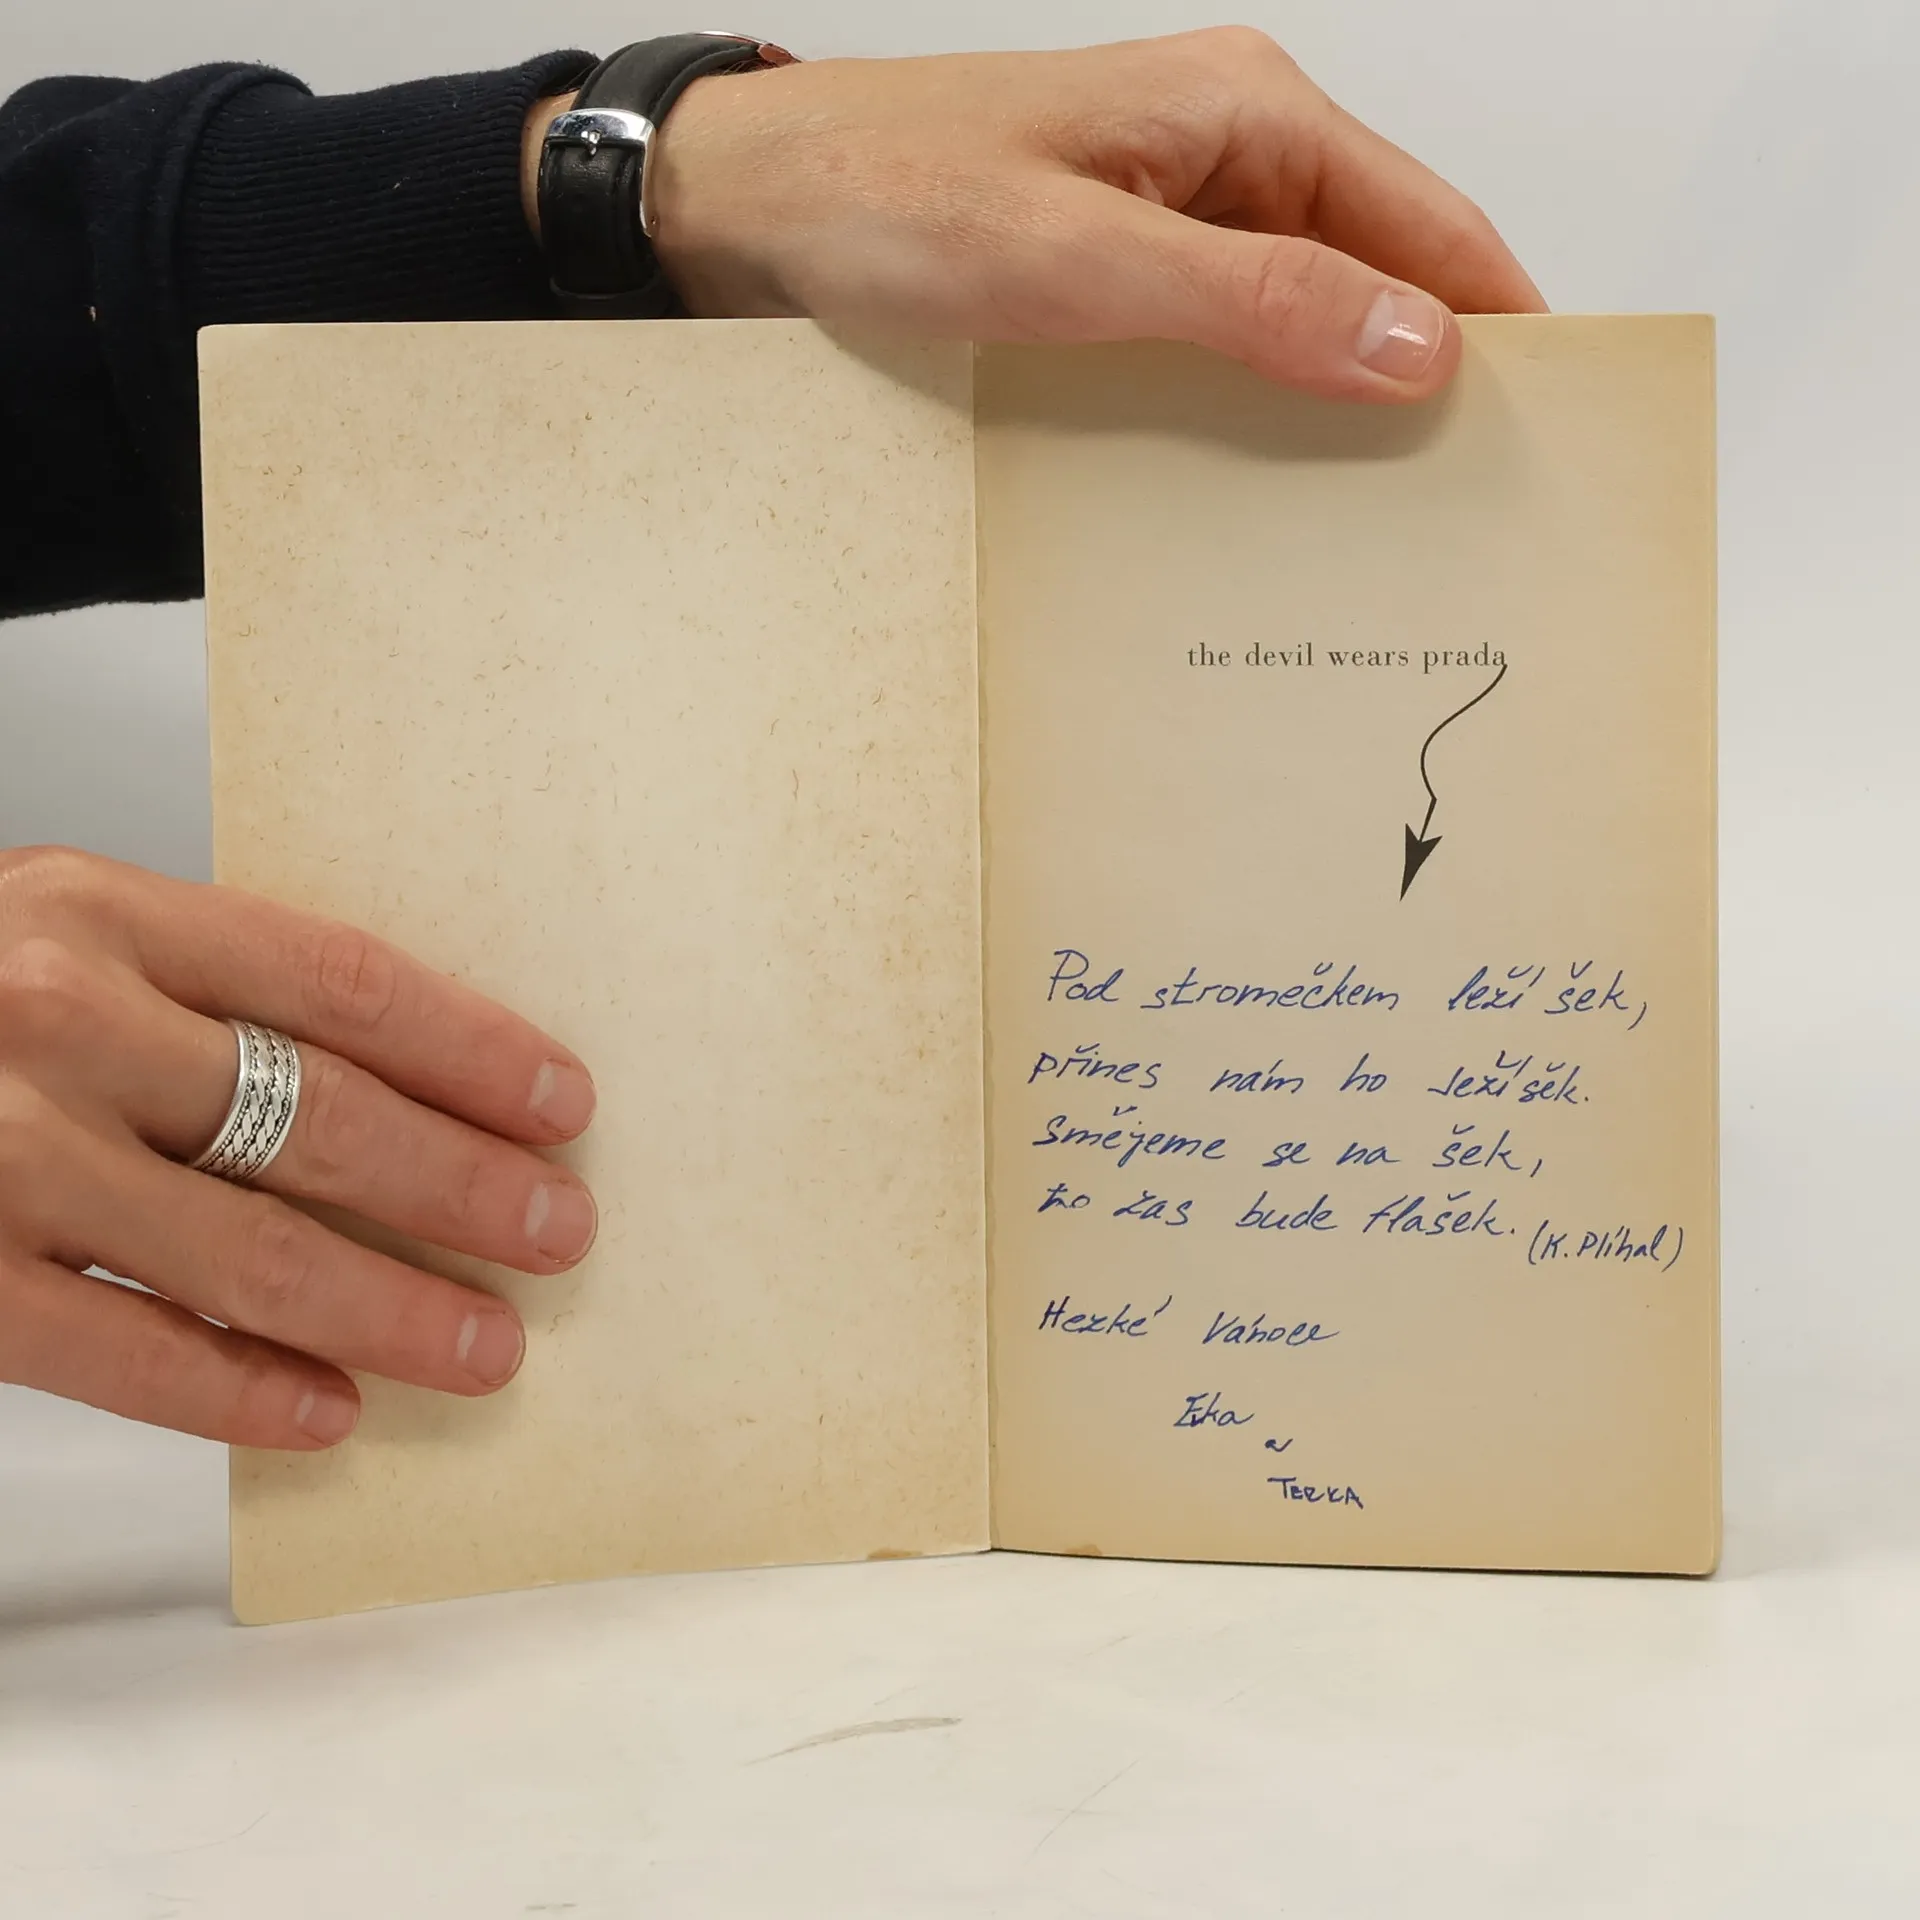 the devil wears prada
Pod stromečkem leží šek,
přines nám ho Ježíšek.
Smějeme se na šek,
to zas bude flašek. (K. Plíhal)
Hezké Vánoce
a
TERKA